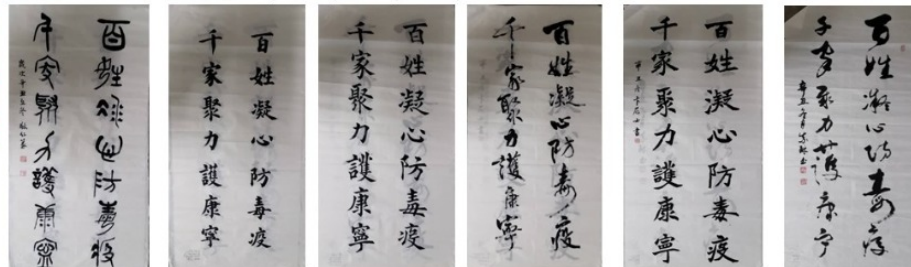 百姓凝心防毒疫
千家聚力護康寧
百姓凝心防毒疫
千家聚力護康寧
百姓凝心防毒疫
千家聚力護康寧
百姓凝心防毒疫
千家聚力護康寧
百姓凝心防毒疫
千家聚力護康寧
百姓凝心防毒疫
千家聚力護康宁